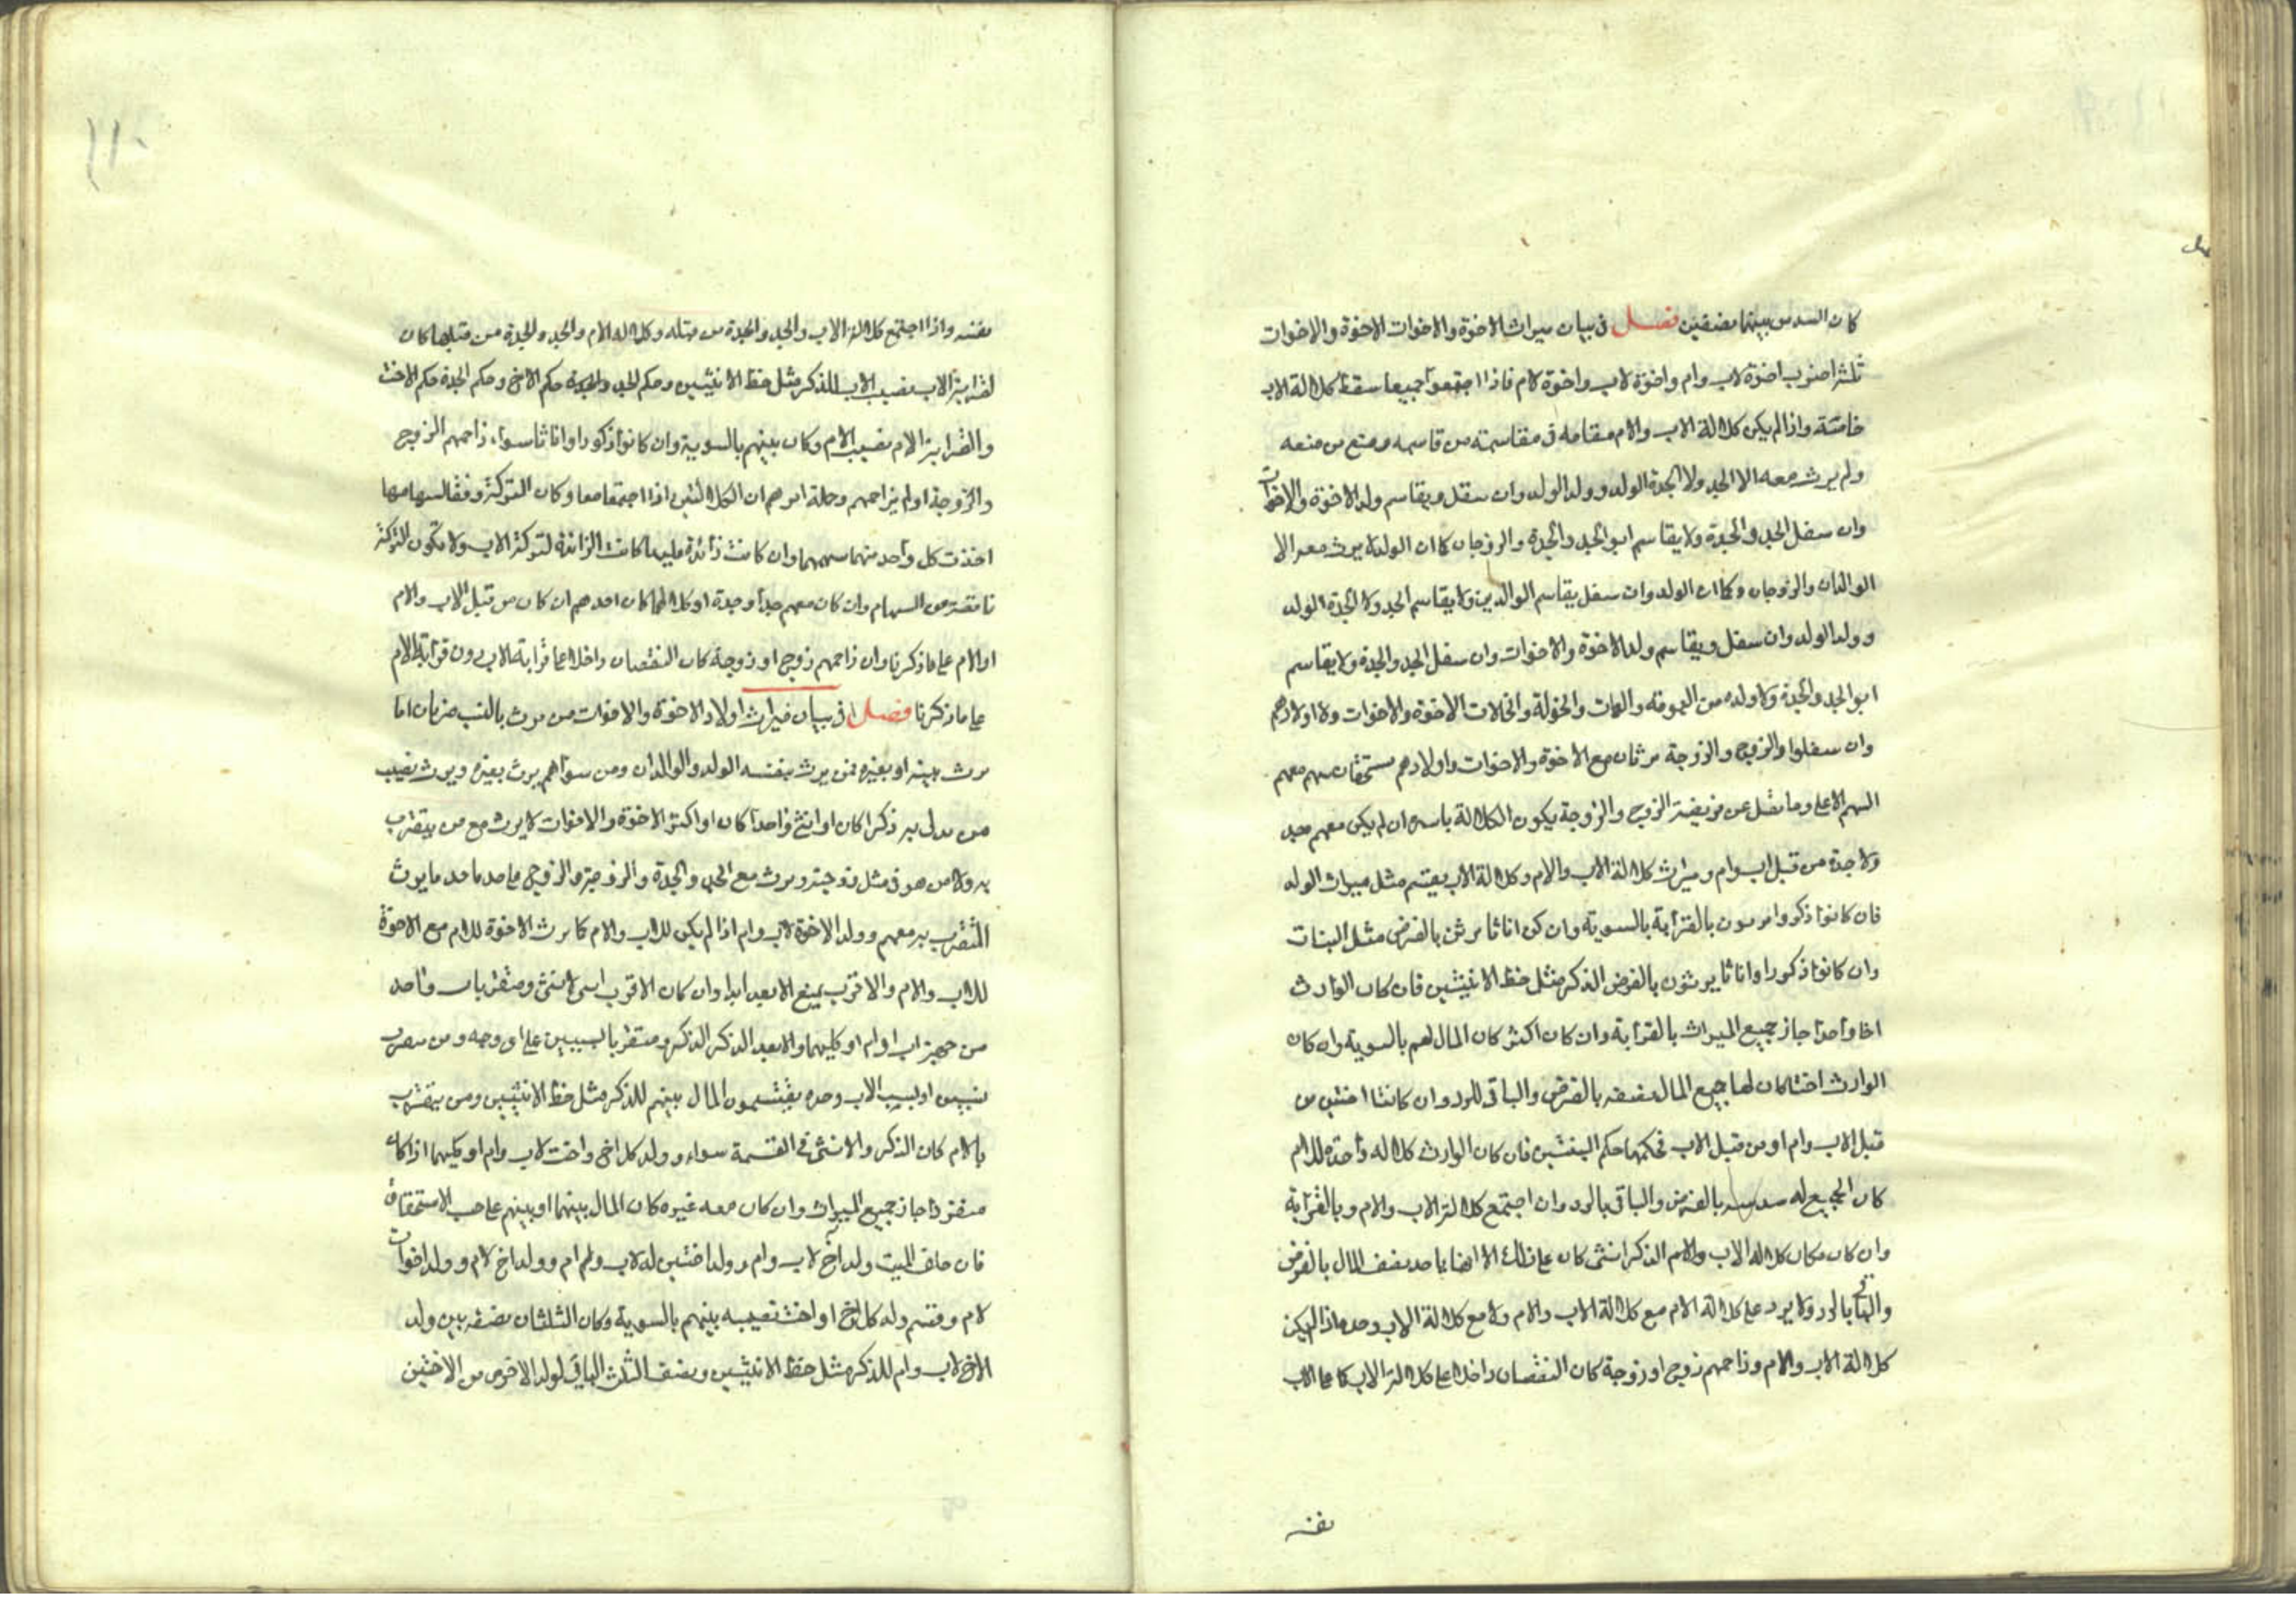 كان السدس بينهما نصفين فصل في بيان ميراث الاخوة والاخوات الاخوة والاخوات
ثلثة اضرب اخوة لاب وام واخوة لاب واخوة لام فاذا اجتمعوا جميعا سقط كلالة الاب
خاصة واذا لم يكن كلالة الاب والام مقامه في مقاسمته من قاسمه ومنع من منعه
ولم يرث معه الا الجد ولا الجدة الولد وولد الولد وان سفل ويقاسم ولد الاخوة والاخوات
وان سفل الجد والجدة ولا يقاسم ابو الجد والجدة والزوجان كما ان الولد لا يرث معه الا
الوالدان والزوجان وكما ان الولد وان سفل يقاسم الوالدين ولا يقاسم الجد ولا الجدة الولد
وولد الولد وان سفل ويقاسم ولد الاخوة والاخوات وان سفل الجد والجدة ولا يقاسم
ابو الجد والجدة ولا ولده من العمومة والعمات والخولة والخالات الاخوة والاخوات ولا اولادهم
وان سفلوا والزوج والزوجة يرثان مع الاخوة والاخوات واولادهم مستحقان سهم معهم
السهم الاعلى وما فضل عن فريضة الزوج والزوجة يكون الكلالة باسره ان لم يكن معهم جد
ولا جدة من قبل اب وام وميراث كلالة الاب والام وكلالة الاب يقسم مثل ميراث الولد
فان كانوا ذكروا يرثون بالقرابة بالسوية وان كن اناثا يرثن بالفرض مثل البنات
وان كانوا ذكورا واناثا يرثون بالفرض الذكر مثل حظ الانثيين فان كان الوارث
اخا واحدا حاز جميع الميراث بالقرابة وان كان اكثر كان المال لهم بالسوية وان كان
الوارث اختا كان لها جميع المال نصفه بالفرض والباقي للرد وان كانتا اختين من
قبل الاب وام او من قبل الاب فحكمهما حكم البنتين فان كان الوارث كلاله واحدة للام
كان الجميع له سدسه بالفرض والباقي بالرد وان اجتمع كلالة الاب والام وبالقرابة
وان كان مكان كلاله الاب والام الذكر انثى كان على ذلك الا انها ياخذ نصف المال بالفرض
والباقي بالرد ولا يرد على كلالة الام مع كلالة الاب والام ولا مع كلالة الاب وحده فاذا لم يكن
كلالة الاب والام وزاحمهم زوج او زوجة كان النقصان داخلا على كلالة الاب كما على الاب
نفسه
١١٠
نفسه واذا اجتمع كلالة الاب والجد والجدة من قبله وكلاله الام والجد والجدة من قبلها كان
لقرابة الاب نصيب الاب للذكر مثل حظ الانثيين وحكم الجد والجدة حكم الاخ وحكم الجدة حكم الاخت
والقرابة الام نصيب الام وكان بينهم بالسوية وان كانوا ذكورا واناثا سواء زاحمهم الزوج
والزوجة او لم يزاحمهم وجملة امرهم ان الكلالتين اذا اجتمعا معا وكان التركة وفقا لسهامها
اخذت كل واحد منهما سهمها وان كانت زائدة عليهما كانت الزائدة لتركة الاب ولا تكون التركة
ناقصة من السهام وان كان معهم جدا وجدة او كلاهما كان احدهم ان كان من قبل الاب والام
او الام على ما ذكرنا وان زاحمهم زوج او زوجة كان النقصان داخلا على قرابة الاب دون قرابة الام
على ما ذكرنا فصل في بيان ميراث اولاد الاخوة والاخوات من يرث بالنسب ضربان اما
يرث بنفسه او بغيره فمن يرث بنفسه الولد والوالدان ومن سواهم يرث بغيره ويرث نصيب
من يدلي به ذكرا كان او انثى واحدا كان او اكثر الاخوة والاخوات لا يرث مع من يتقرب
به ولا من هو في مثل درجته ويرث مع الجد والجدة والزوجة والزوج ياخذ ما ياخذ ما يرث
المتقرب به معهم وولد الاخوة لاب وام اذا لم يكن للاب والام كما يرث الاخوة للام مع الاخوة
للاب والام والاقرب يمنع الابعد ابدا وان كان الاقرب انثى ومتقربا واحد
من جهة اب او ام او كليهما والابعد الذكر الذكر ومتقربا بالسببين على اي وجه ومن يتقرب
بسببين او بسبب الاب وحده يقتسمون المال بينهم للذكر مثل حظ الانثيين ومن يتقرب
بالام كان الذكر والانثى في القسمة سواء وولد كل اخ واخت لاب وام او كليهما اذا كان
منفردا حاز جميع الميراث وان كان معه غيره كان المال بينهما او بينهم على حسب الاستحقاق
فان خلف الميت ولد اخ لاب وام وولد اختين له لاب ولم ام وولد اخ لام وولد اخوات
لام وقسم ولد كل اخ او اخت نصيبه بينهم بالسوية وكان الثلثان نصفه بين ولد
الاخ لاب وام للذكر مثل حظ الانثيين ونصف الثلث الباقي لولد الاخرى من الاختين